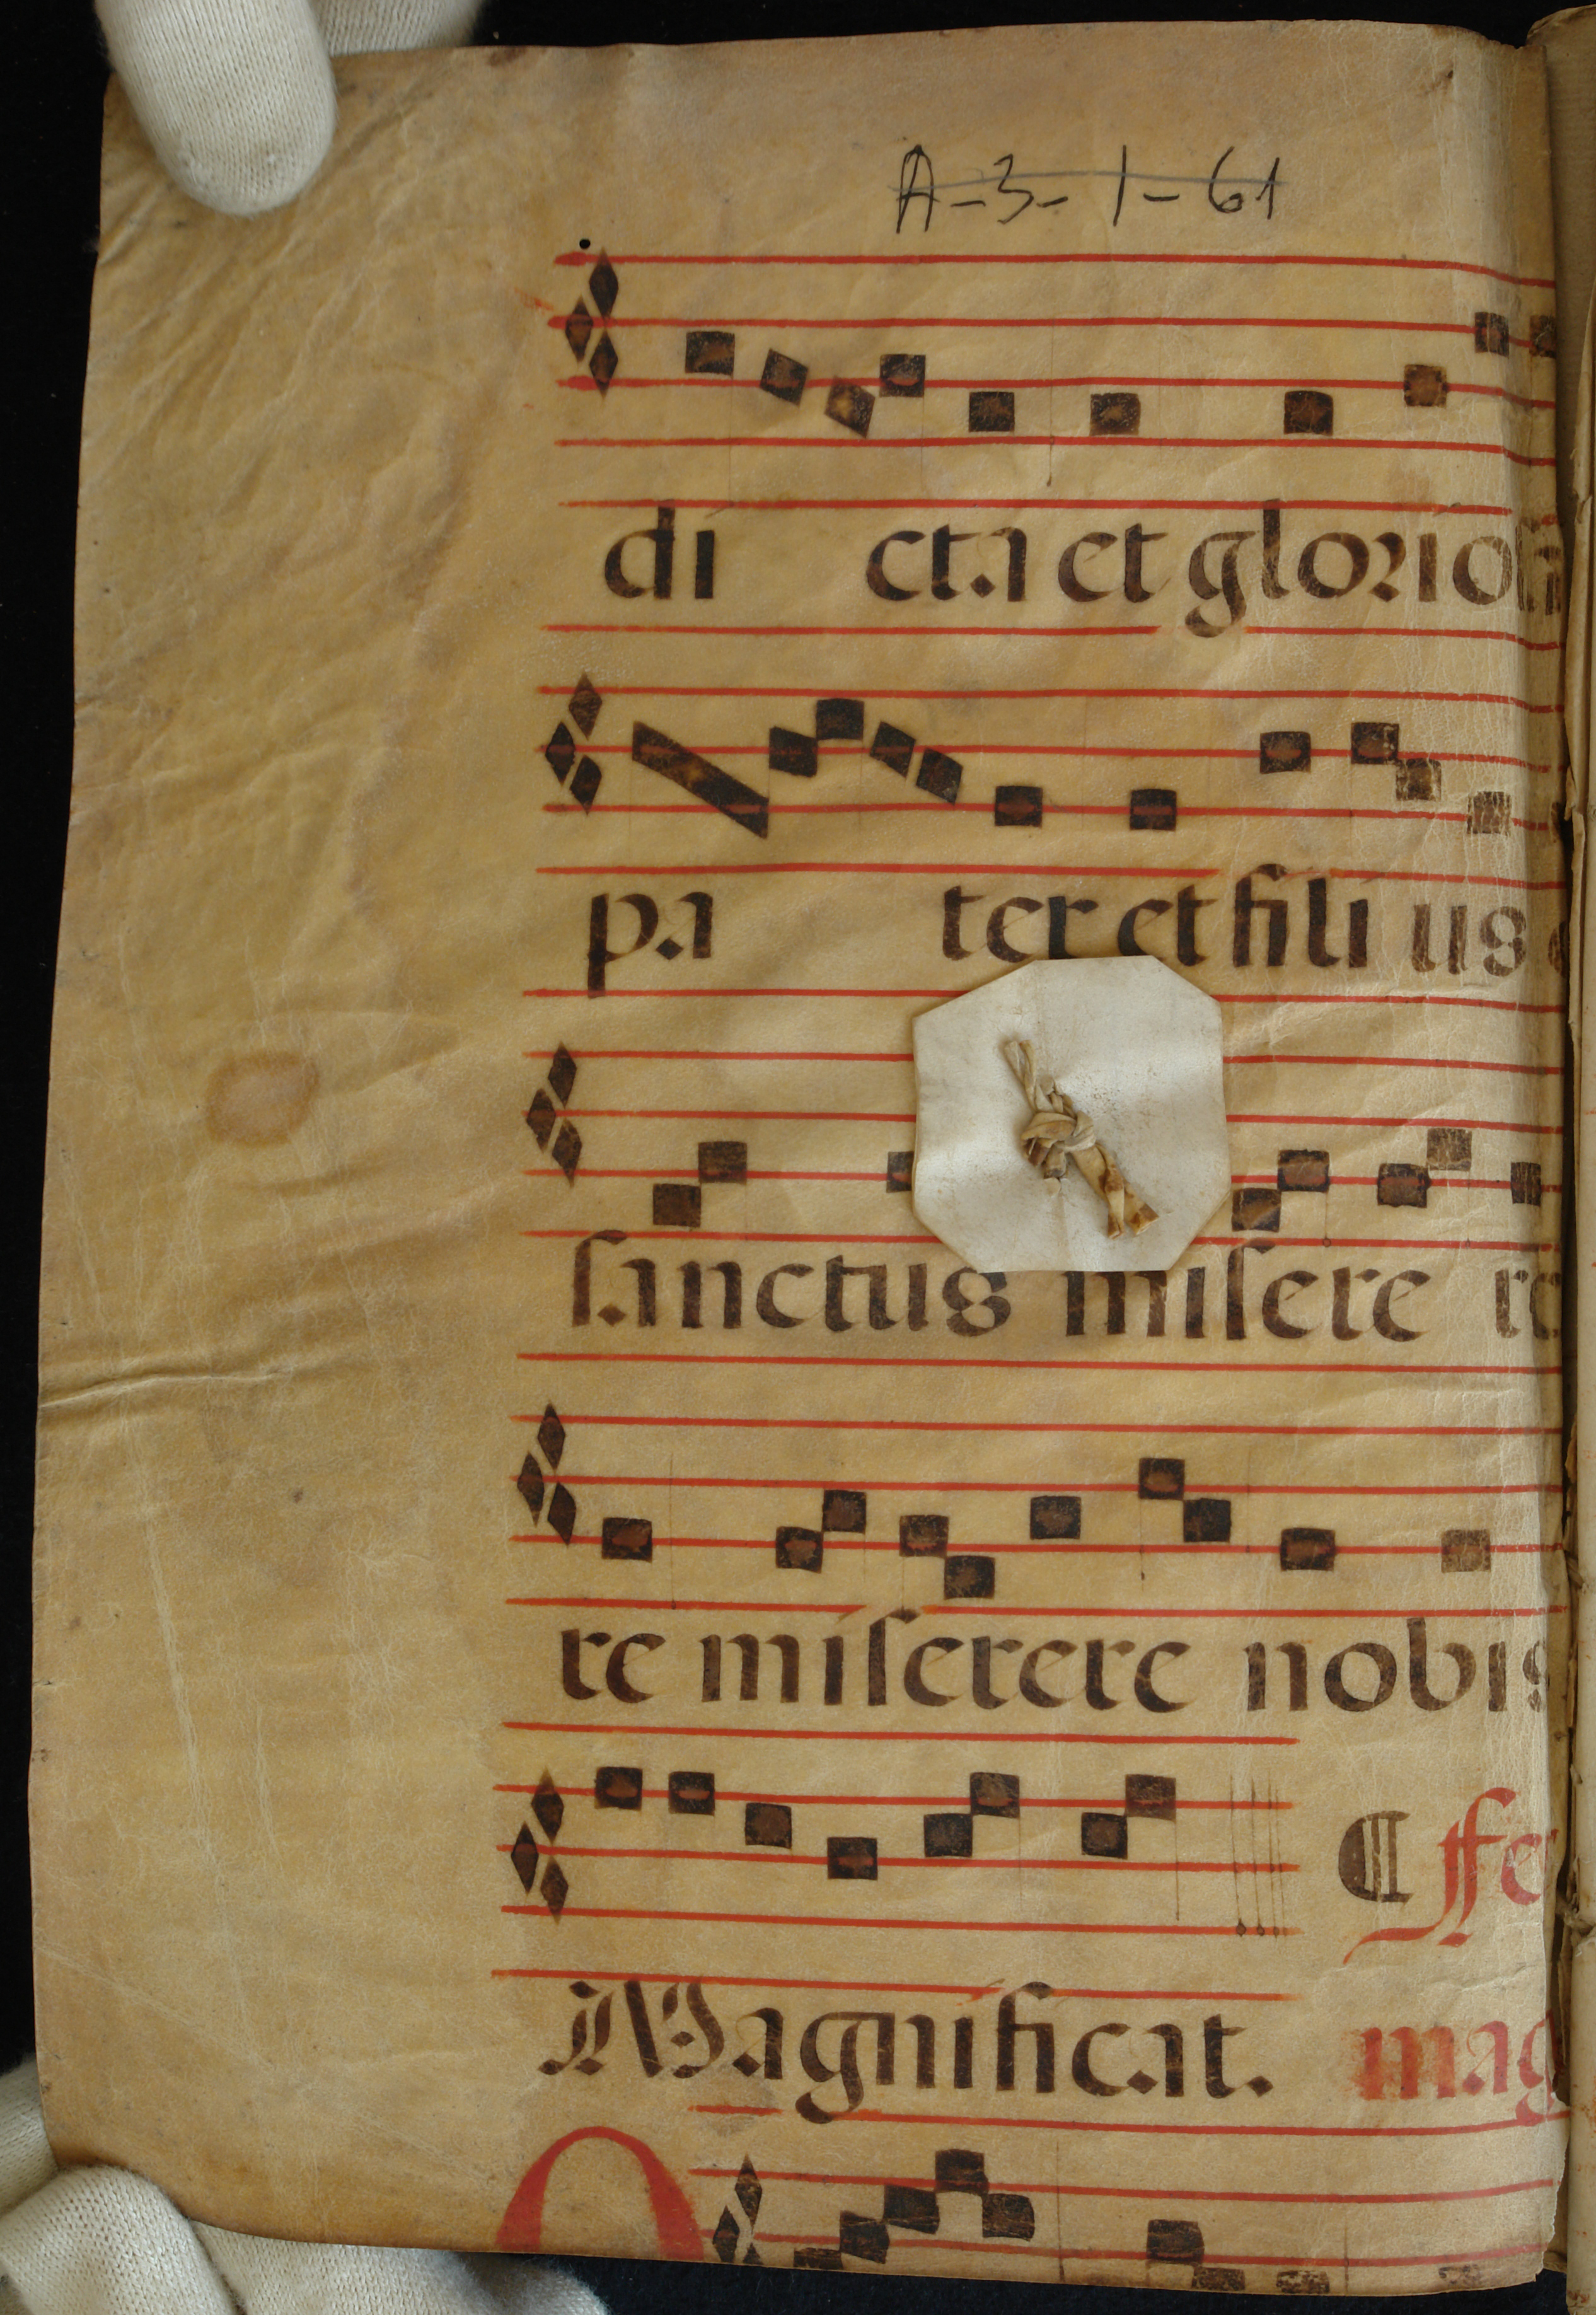 A-3-1-61
di cta et gloriosa
pa ter et fili us
sanctus misere re
re miserere nobis
Magnificat. mag
O